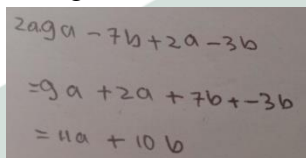 2a9a - 7b + 2a - 3b
= 9a + 2a + 7b + -3b
= 11a + 10b